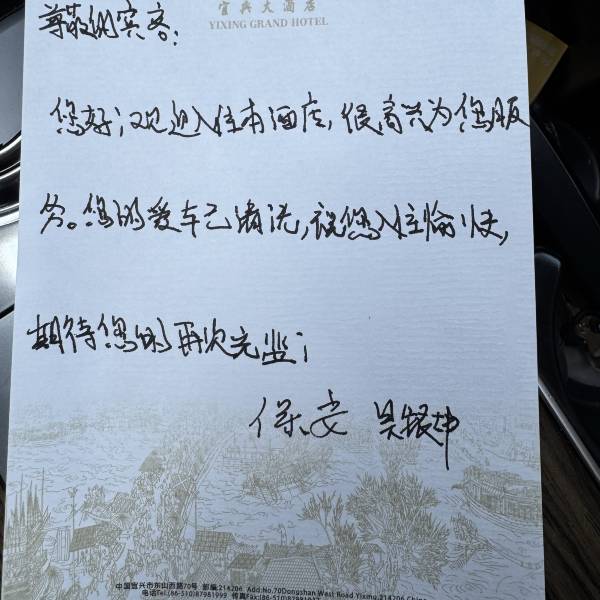 尊敬的宾客:
宜兴大酒店
YIXING GRAND HOTEL
您好;欢迎入住本酒店,很高兴为您服
务。您的爱车已清洗,祝您入住愉快,
期待您的再次光临;
保安 吴银坤
中国宜兴市东山西路70号 邮编:214206 Add:No.70Dongshan West Road Yixing,214206,China
电话Tel:(86-510)87981999 传真Fax:(86-510)